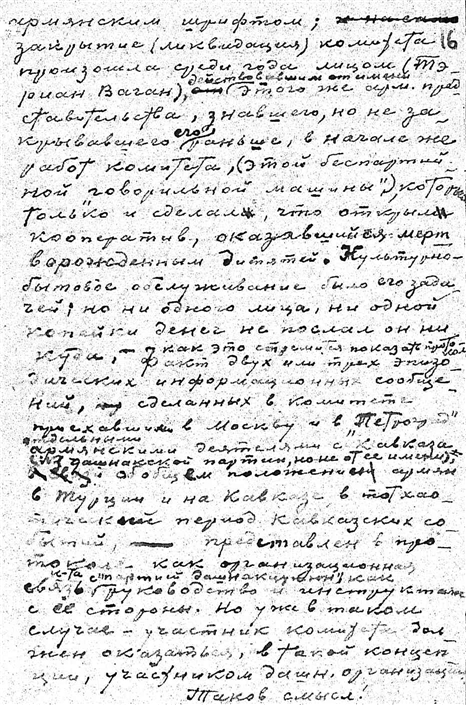 армянским шрифтом;
закрытие (ликвидация) комитета 16
произошла среди года лицом (Тэ-
риан Ваган), действовавшим от имени
этого же арм. пред
ставительства, знавшего, но не за-
крывавшего его раньше, в начале же
работ комитета, (этой беспартий-
ной "говорильной машины"), который
только и сделал, что открыл
кооператив, оказавшийся мерт
ворожденным дитятей. Культурно-
бытовое обслуживание было его зада-
чей; но ни одного лица, ни одной
копейки денег не послал он ни-
куда, – как это стремится показать протокол
факт двух или трех эпизо-
дических информационных сообще-
ний, сделанных в комитете
приехавшими в Москву и в "Петроград"
отдельными
армянскими деятелями с "Кавказа
из дашнакской партии, но не от ее имени)"
об общем положении армян
в Турции и на Кавказе, в тот хао-
тический период Кавказских со-
бытий, — представлен в про-
токоле как организационная
связь к-та с партией Дашнакцутюн, как
руководство и инструктаж
с её стороны. Но уже в таком
случае – участник комитета дол-
жен оказаться, в такой концеп-
ции, участником дашн. организации
Таков смысл!